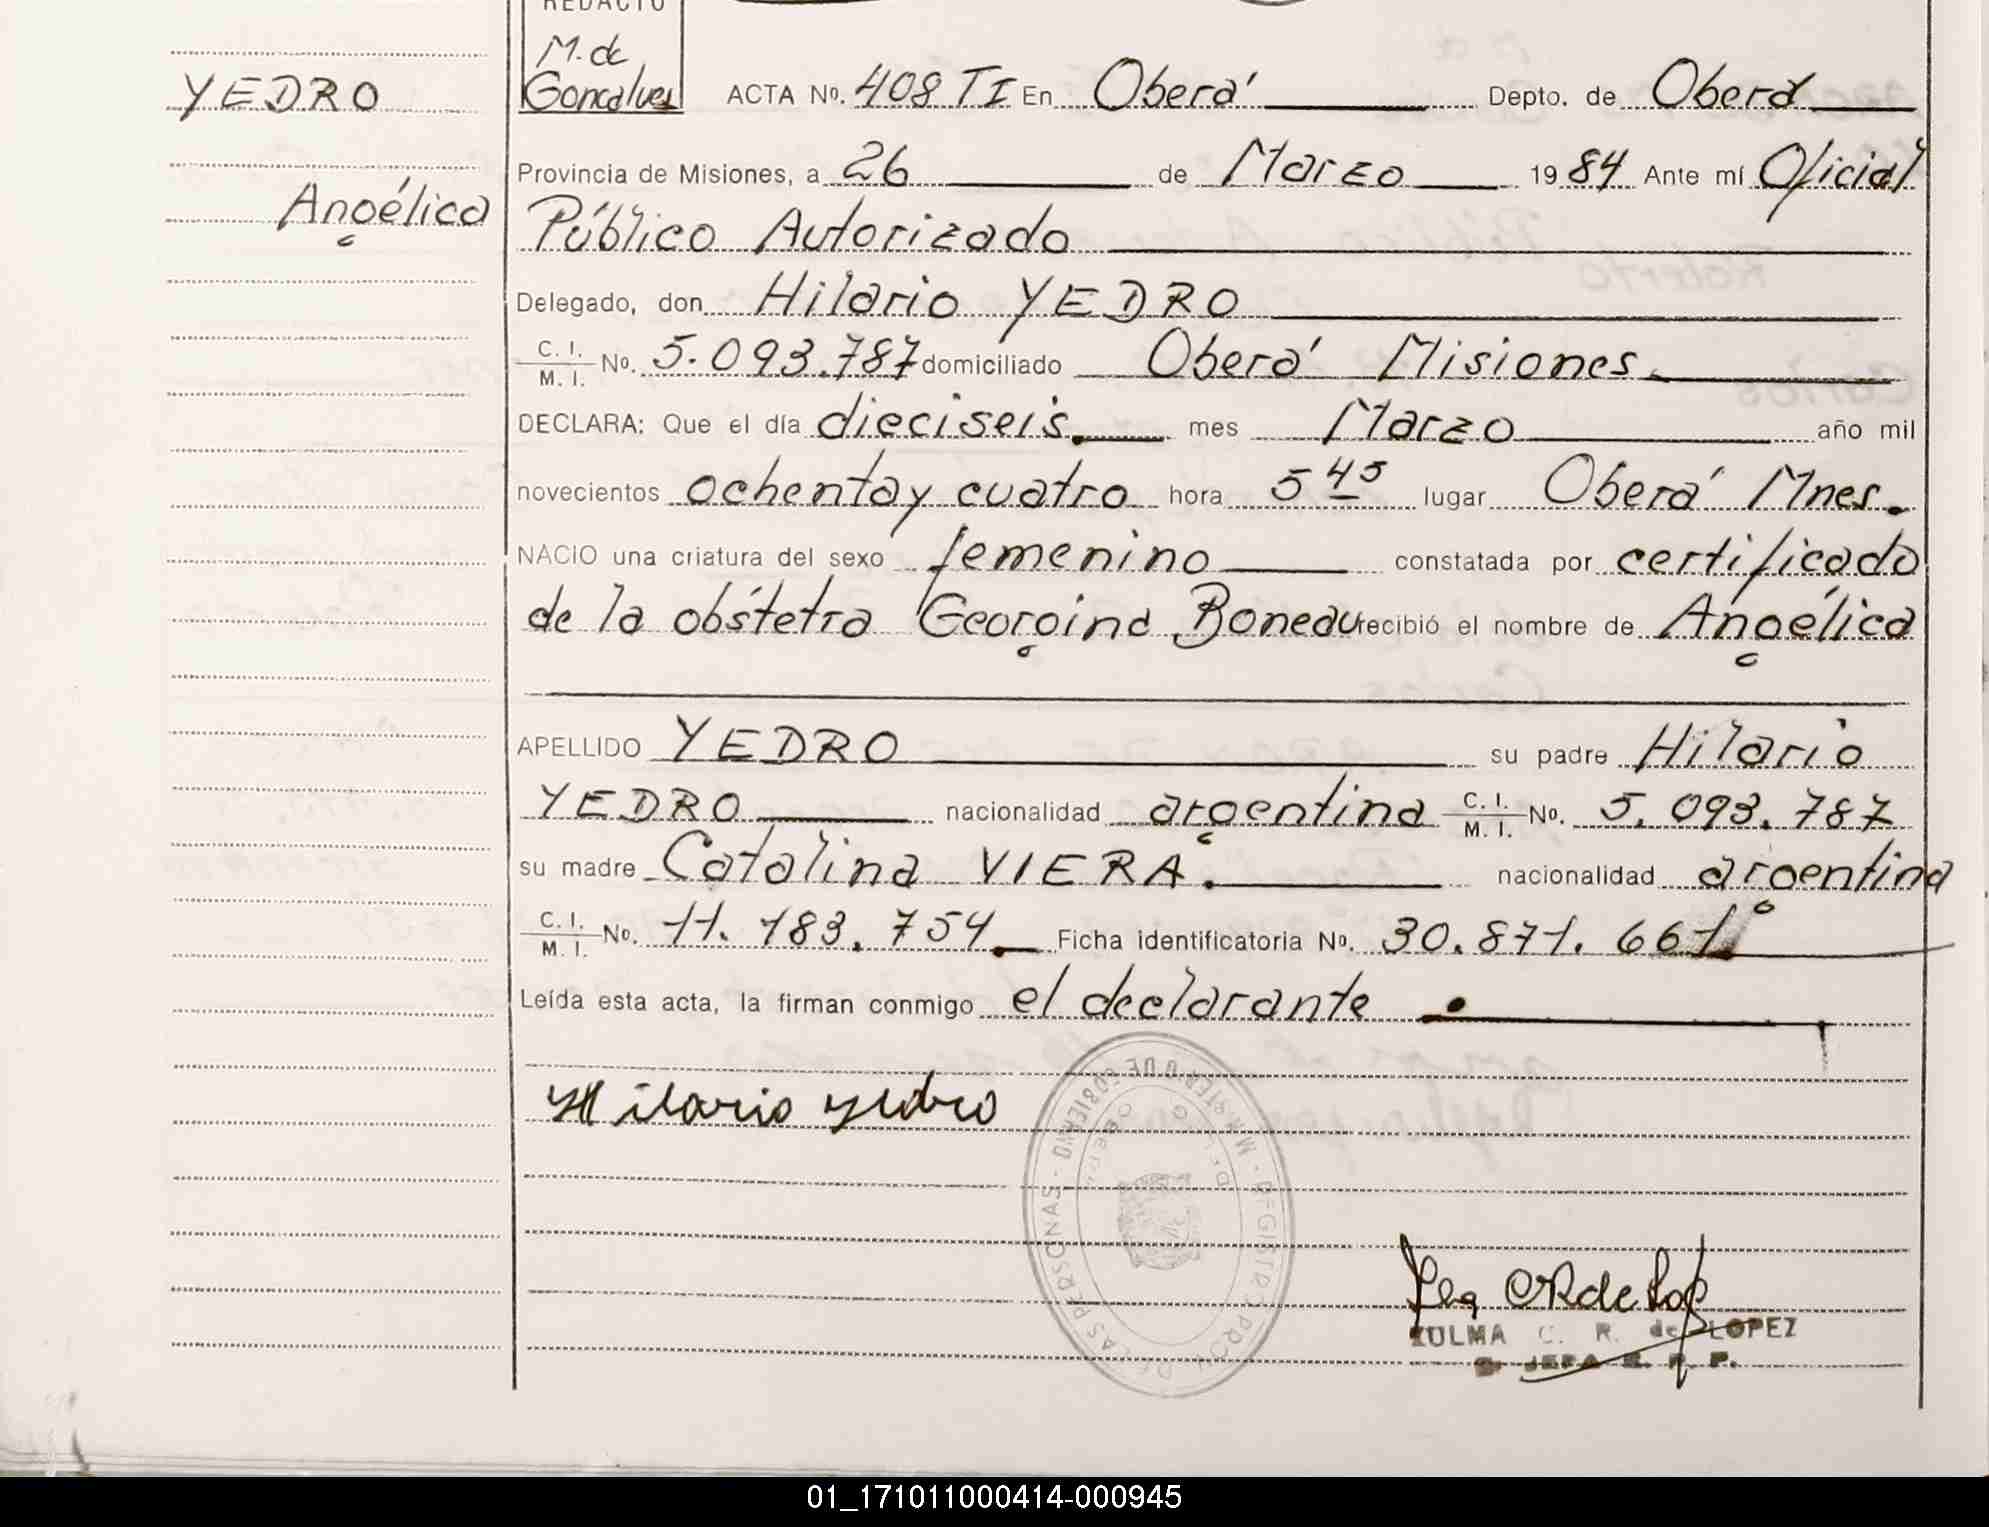 REDACTO
M. de
Goncalves
YEDRO
Angélica
ACTA Nº. 408 TI En Oberá Depto. de Oberá
Provincia de Misiones, a 26 de Marzo 1984 Ante mí Oficial
Público Autorizado
Delegado, don Hilario YEDRO
C. I. / M. I. Nº. 5.093.787 domiciliado Oberá Misiones.
DECLARA: Que el día dieciseis. mes Marzo año mil
novecientos ochenta y cuatro hora 5 45 lugar Oberá Mnes.
NACIO una criatura del sexo femenino constatada por certificado
de la obstetra Georgina Boneau recibió el nombre de Angélica
APELLIDO YEDRO su padre Hilario
YEDRO nacionalidad argentina C. I. / M. I. Nº. 5.093.787
su madre Catalina VIERA. nacionalidad argentina
C. I. / M. I. Nº. 11.183.754. Ficha identificatoria Nº. 30.871.661
Leída esta acta, la firman conmigo el declarante.
Hilario Yedro
MINISTERIO DE GOBIERNO - REGISTRO PROV. DE LAS PERSONAS -
ZULMA C. R. de LOPEZ
JEFA R. P. P.
01_171011000414-000945